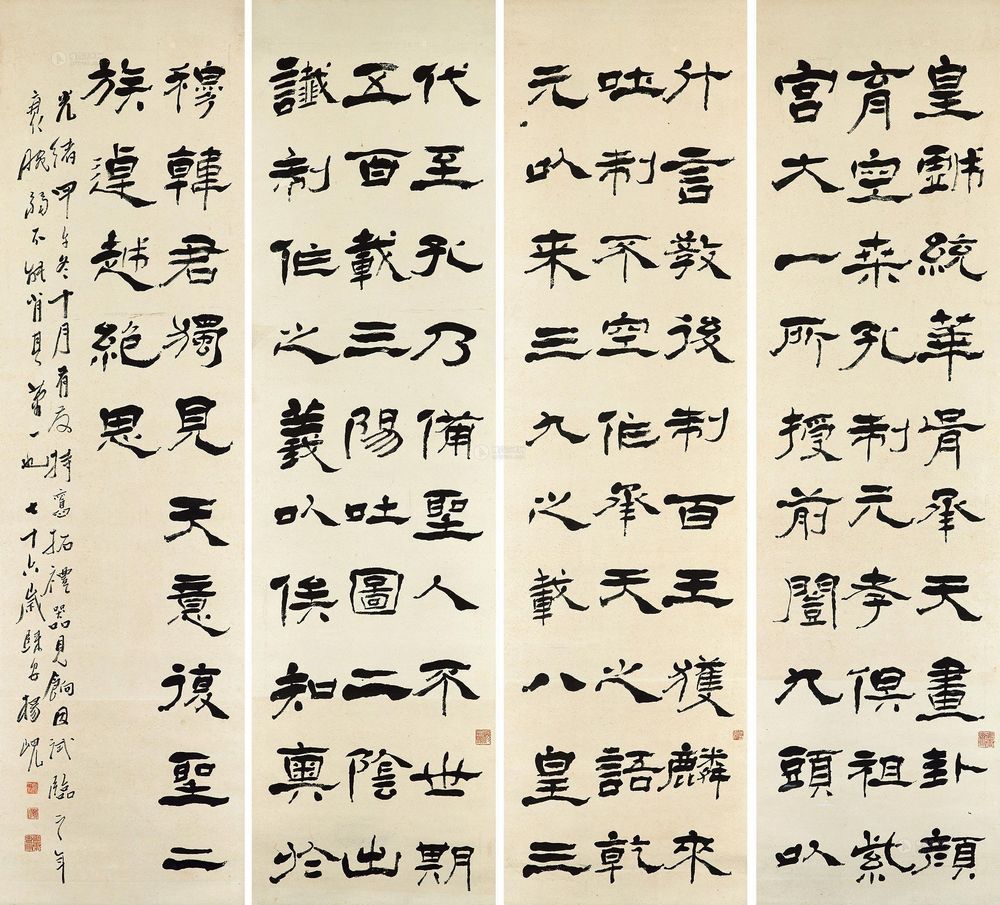 皇戲統華胥承天畫卦顏
育空桑孔制元孝俱祖紫
宮大一所授前闓九頭以
什言教後制百王獲麟來
吐制不空作承天之語乾
元以来三九之載八皇三
代至孔乃備聖人不世期
五百載三陽吐圖二陰出
讖制作之義以俟知奧於
穆韓君獨見天意復聖二
族逴越絕思
光緒甲午冬十月有友持舊拓禮器見餉因試臨之年
衰腕弱不能肖其萬一也七十六歲歸安楊峴